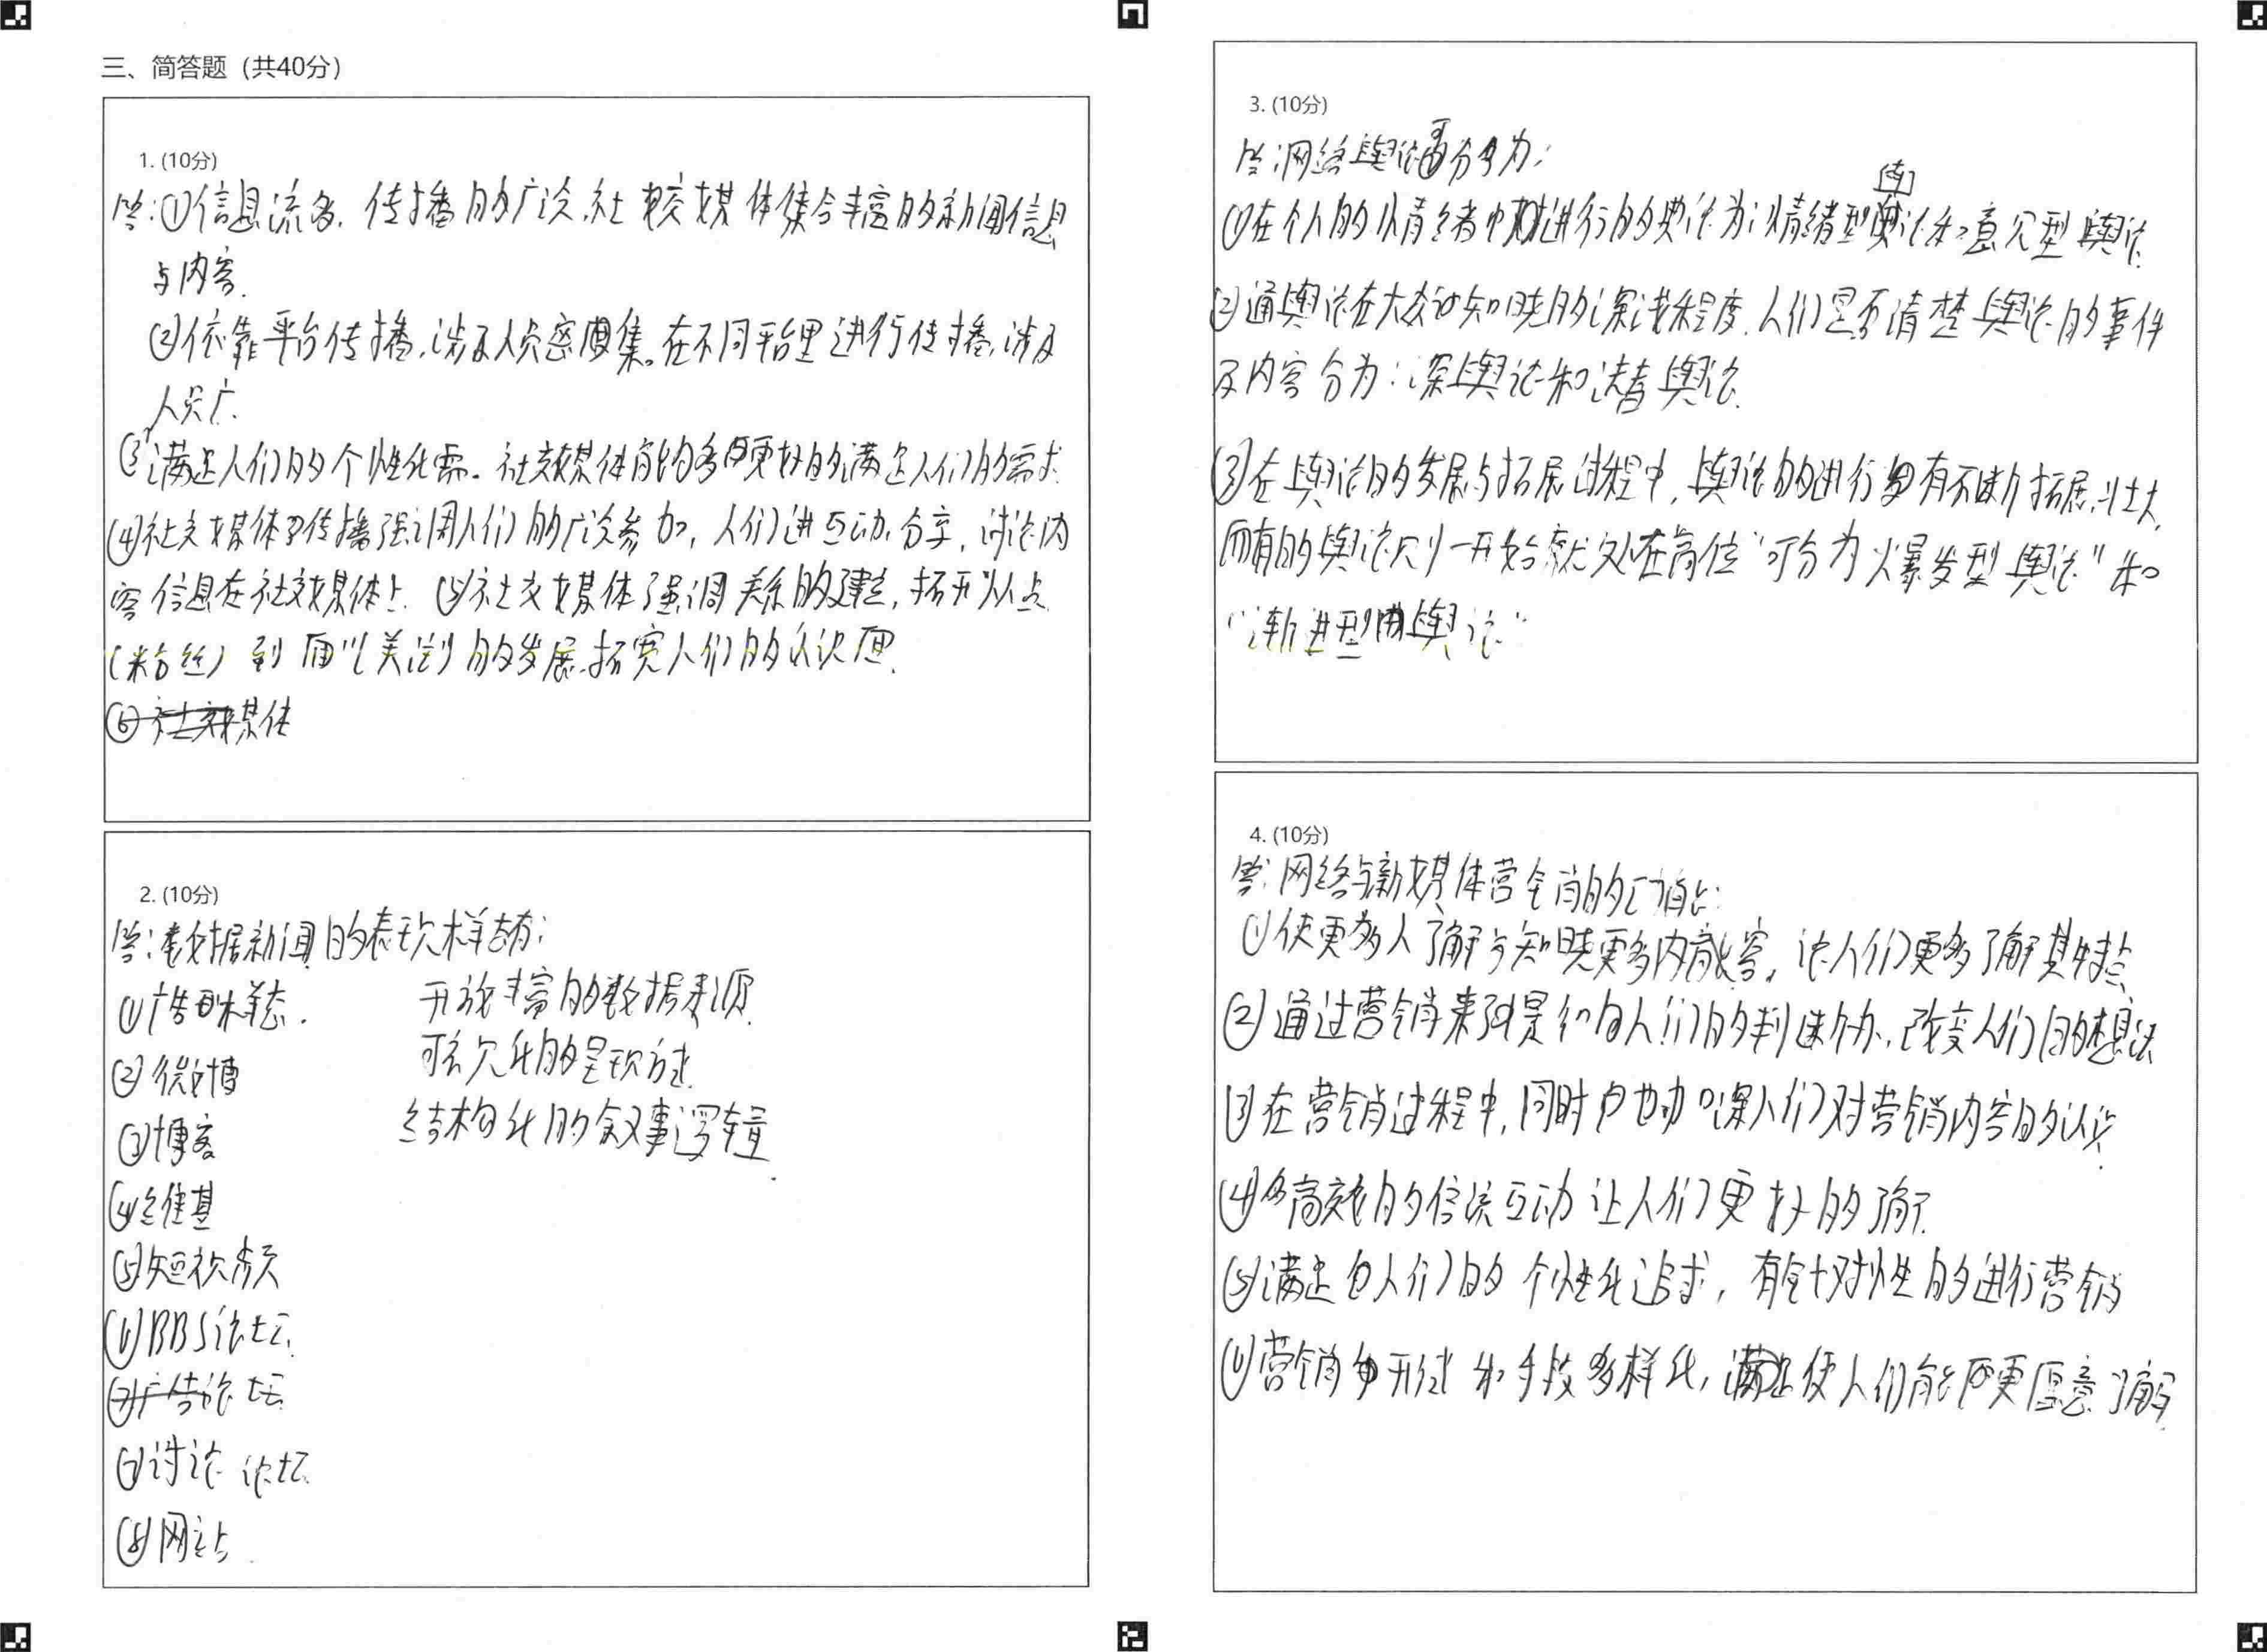 三、简答题（共40分）
1. (10分)
答:①信息流多,传播的广泛,社交媒体集合丰富的新闻信息
与内容.
②依靠平台传播,涉及人员密集。在不同平台里进行传播,涉及
人员广.
③满足人们的个性化需.社交媒体能够更好的满足人们的需求.
④社交媒体传播强调人们的广泛参加,人们进互动,分享,讨论内
容信息在社交媒体上. ⑤社交媒体了强调关系的建立,拓开从点
(粉丝)到面"(关注)的发展.拓宽人们的认识面.
⑥社交媒体
2. (10分)
答:数据新闻的表现样态有:
①广告样态.
②微博
③博客
④维基
⑤短视频
⑥BBS论坛.
⑦广告论坛
⑦讨论论坛.
⑧网站.
开放丰富的数据来源.
可视化的呈现方式.
结构化的叙事逻辑.
3. (10分)
答:网络舆论可分为:
①在个人的情绪中进行的舆论为:情绪型舆论和意见型舆论.
②通舆论在大众知晓的深浅程度.人们是否清楚舆论的事件
及内容分为:深舆论和浅舆论.
③在舆论的发展与拓展过程中,舆论的进行有不断拓展,壮大,
而有的舆论则一开始就处在高位"可分为爆发型舆论"和
"渐进型舆论"
4. (10分)
答:网络与新媒体营销的:
①使更多人了解与知晓更多内容,让人们更多了解其特点
②通过营销来人们的判断,改变人们的想法
③在营销过程中,同时也加深人们对营销内容的认识.
④高效的信流互动让人们更好的了解.
⑤满足人们的个性化追求,有针对性的进行营销
⑥营销形式和手段多样化,使人们能更愿意了解.